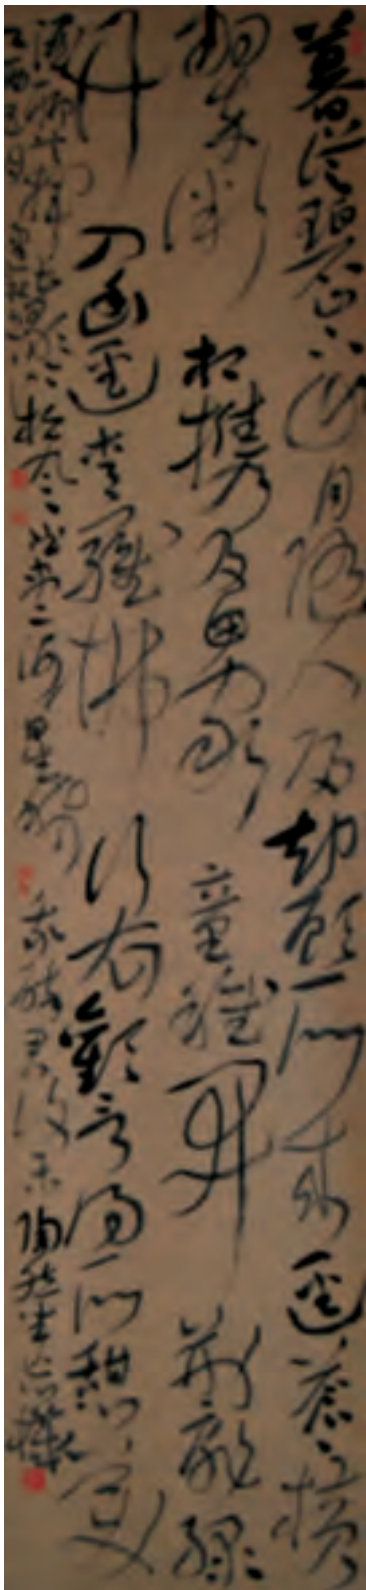 暮從碧山下山月隨人歸卻顧所來徑蒼蒼橫
翠微相攜及田家童稚開荊扉綠
竹入幽徑青蘿拂行衣歡言得所憩美
酒聊共揮長歌吟松風曲盡河星稀我醉君復樂陶然共忘機
乙酉